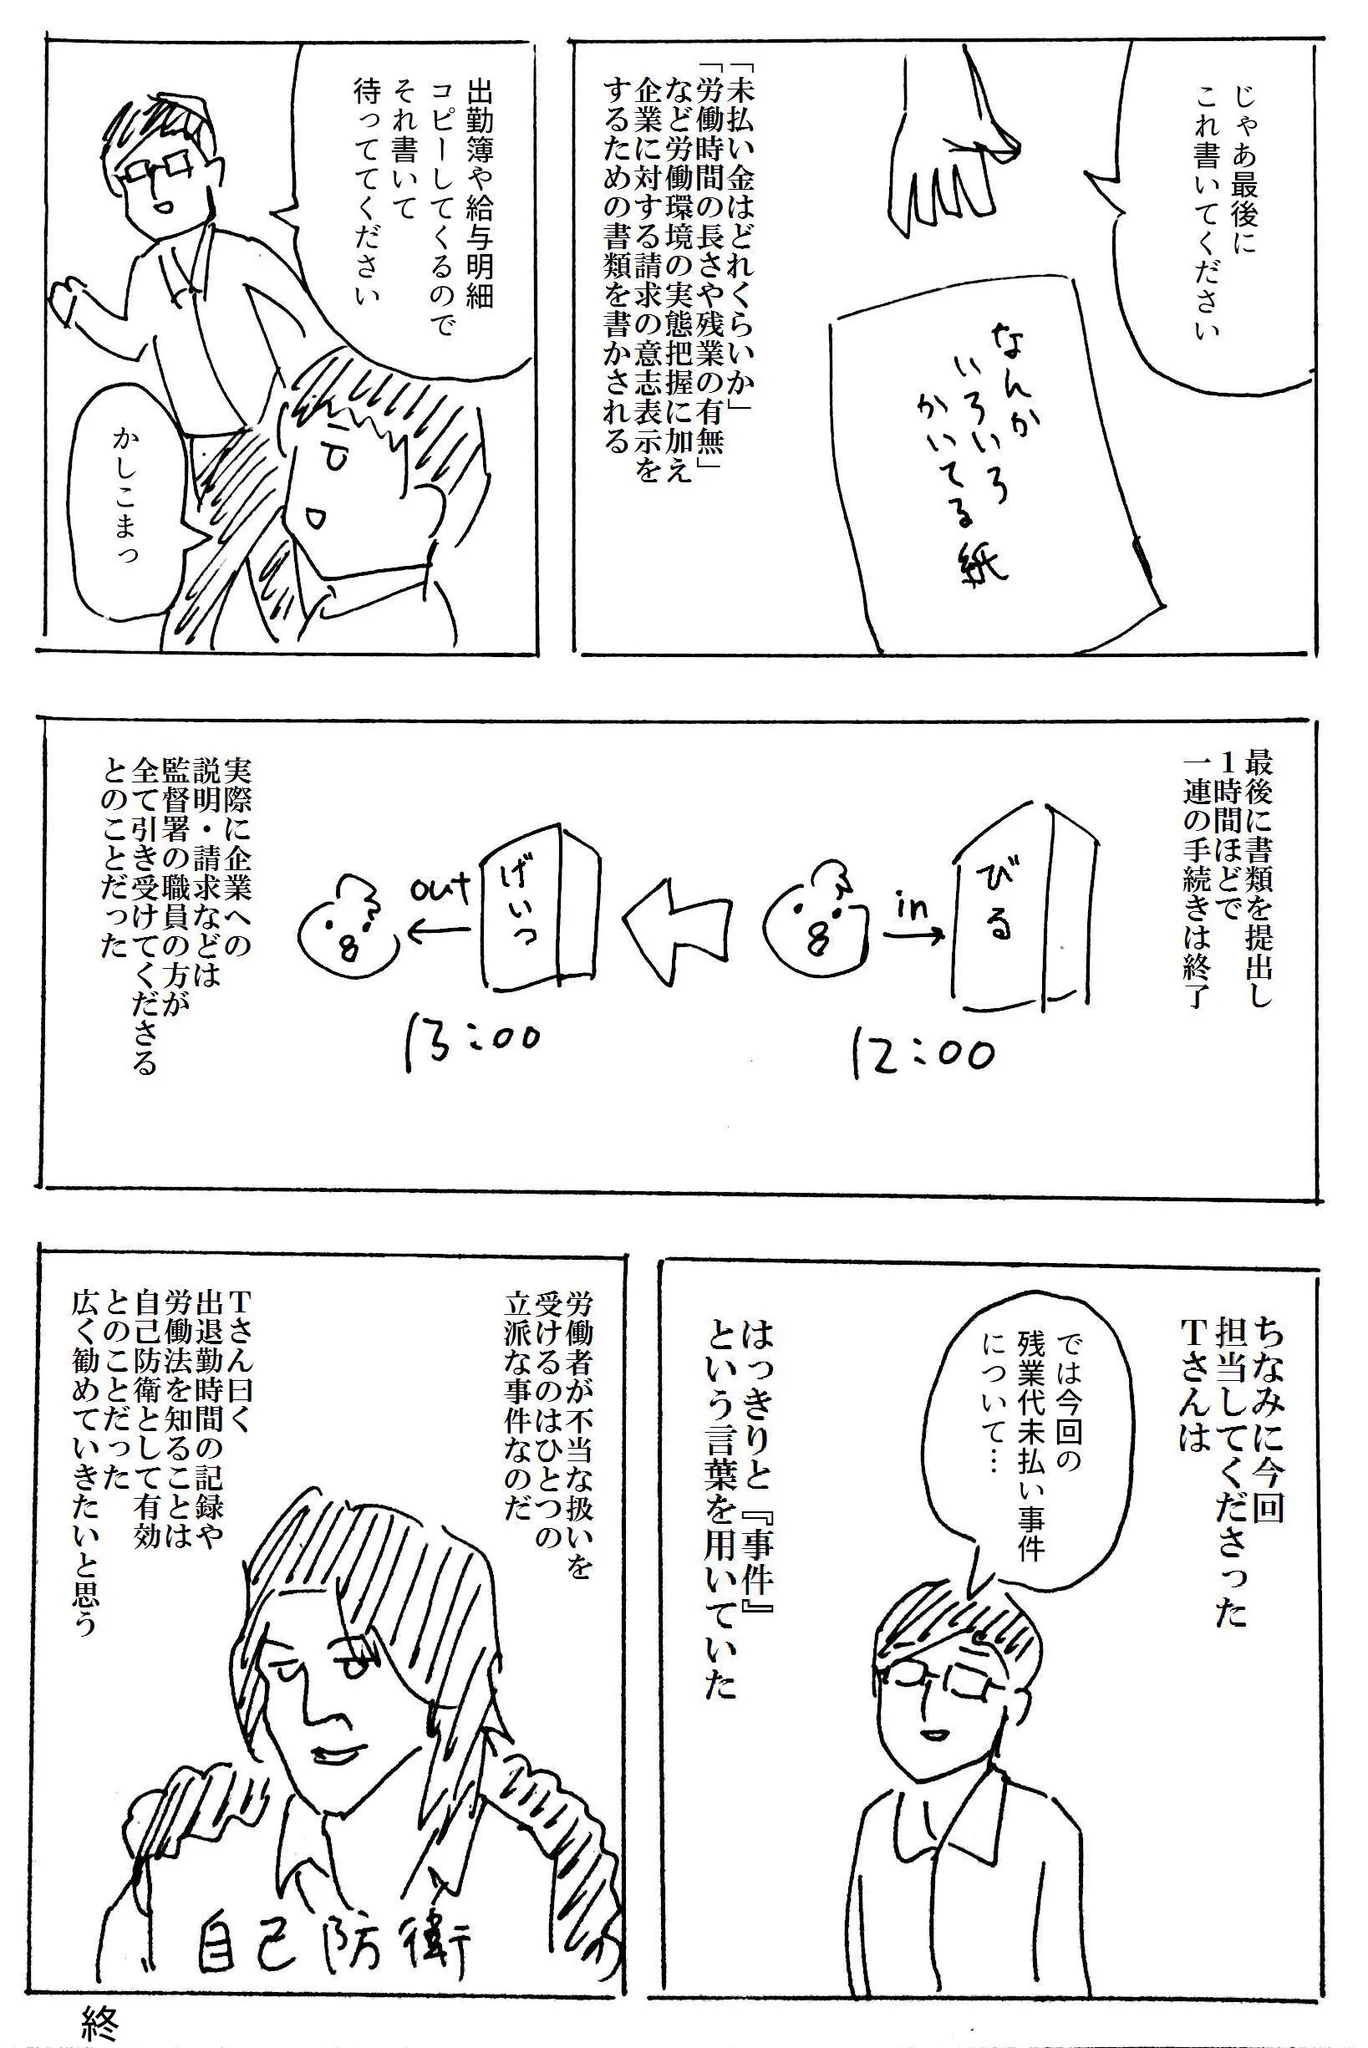 じゃあ最後に
これ書いてください
なんか
いろいろ
かいてる紙
「未払い金はどれくらいか」
「労働時間の長さや残業の有無」
など労働環境の実態把握に加え
企業に対する請求の意志表示を
するための書類を書かされる
出勤簿や給与明細
コピーしてくるので
それ書いて
待っててください
かしこまっ
最後に書類を提出し
1時間ほどで
一連の手続きは終了
びる
in
12:00
げいつ
out
13:00
実際に企業への
説明・請求などは
監督署の職員の方が
全て引き受けてくださる
とのことだった
ちなみに今回
担当してくださった
Tさんは
では今回の
残業代未払い事件
について…
はっきりと『事件』
という言葉を用いていた
労働者が不当な扱いを
受けるのはひとつの
立派な事件なのだ
Tさん曰く
出退勤時間の記録や
労働法を知ることは
自己防衛として有効
とのことだった
広く勧めていきたいと思う
自己防衛
終